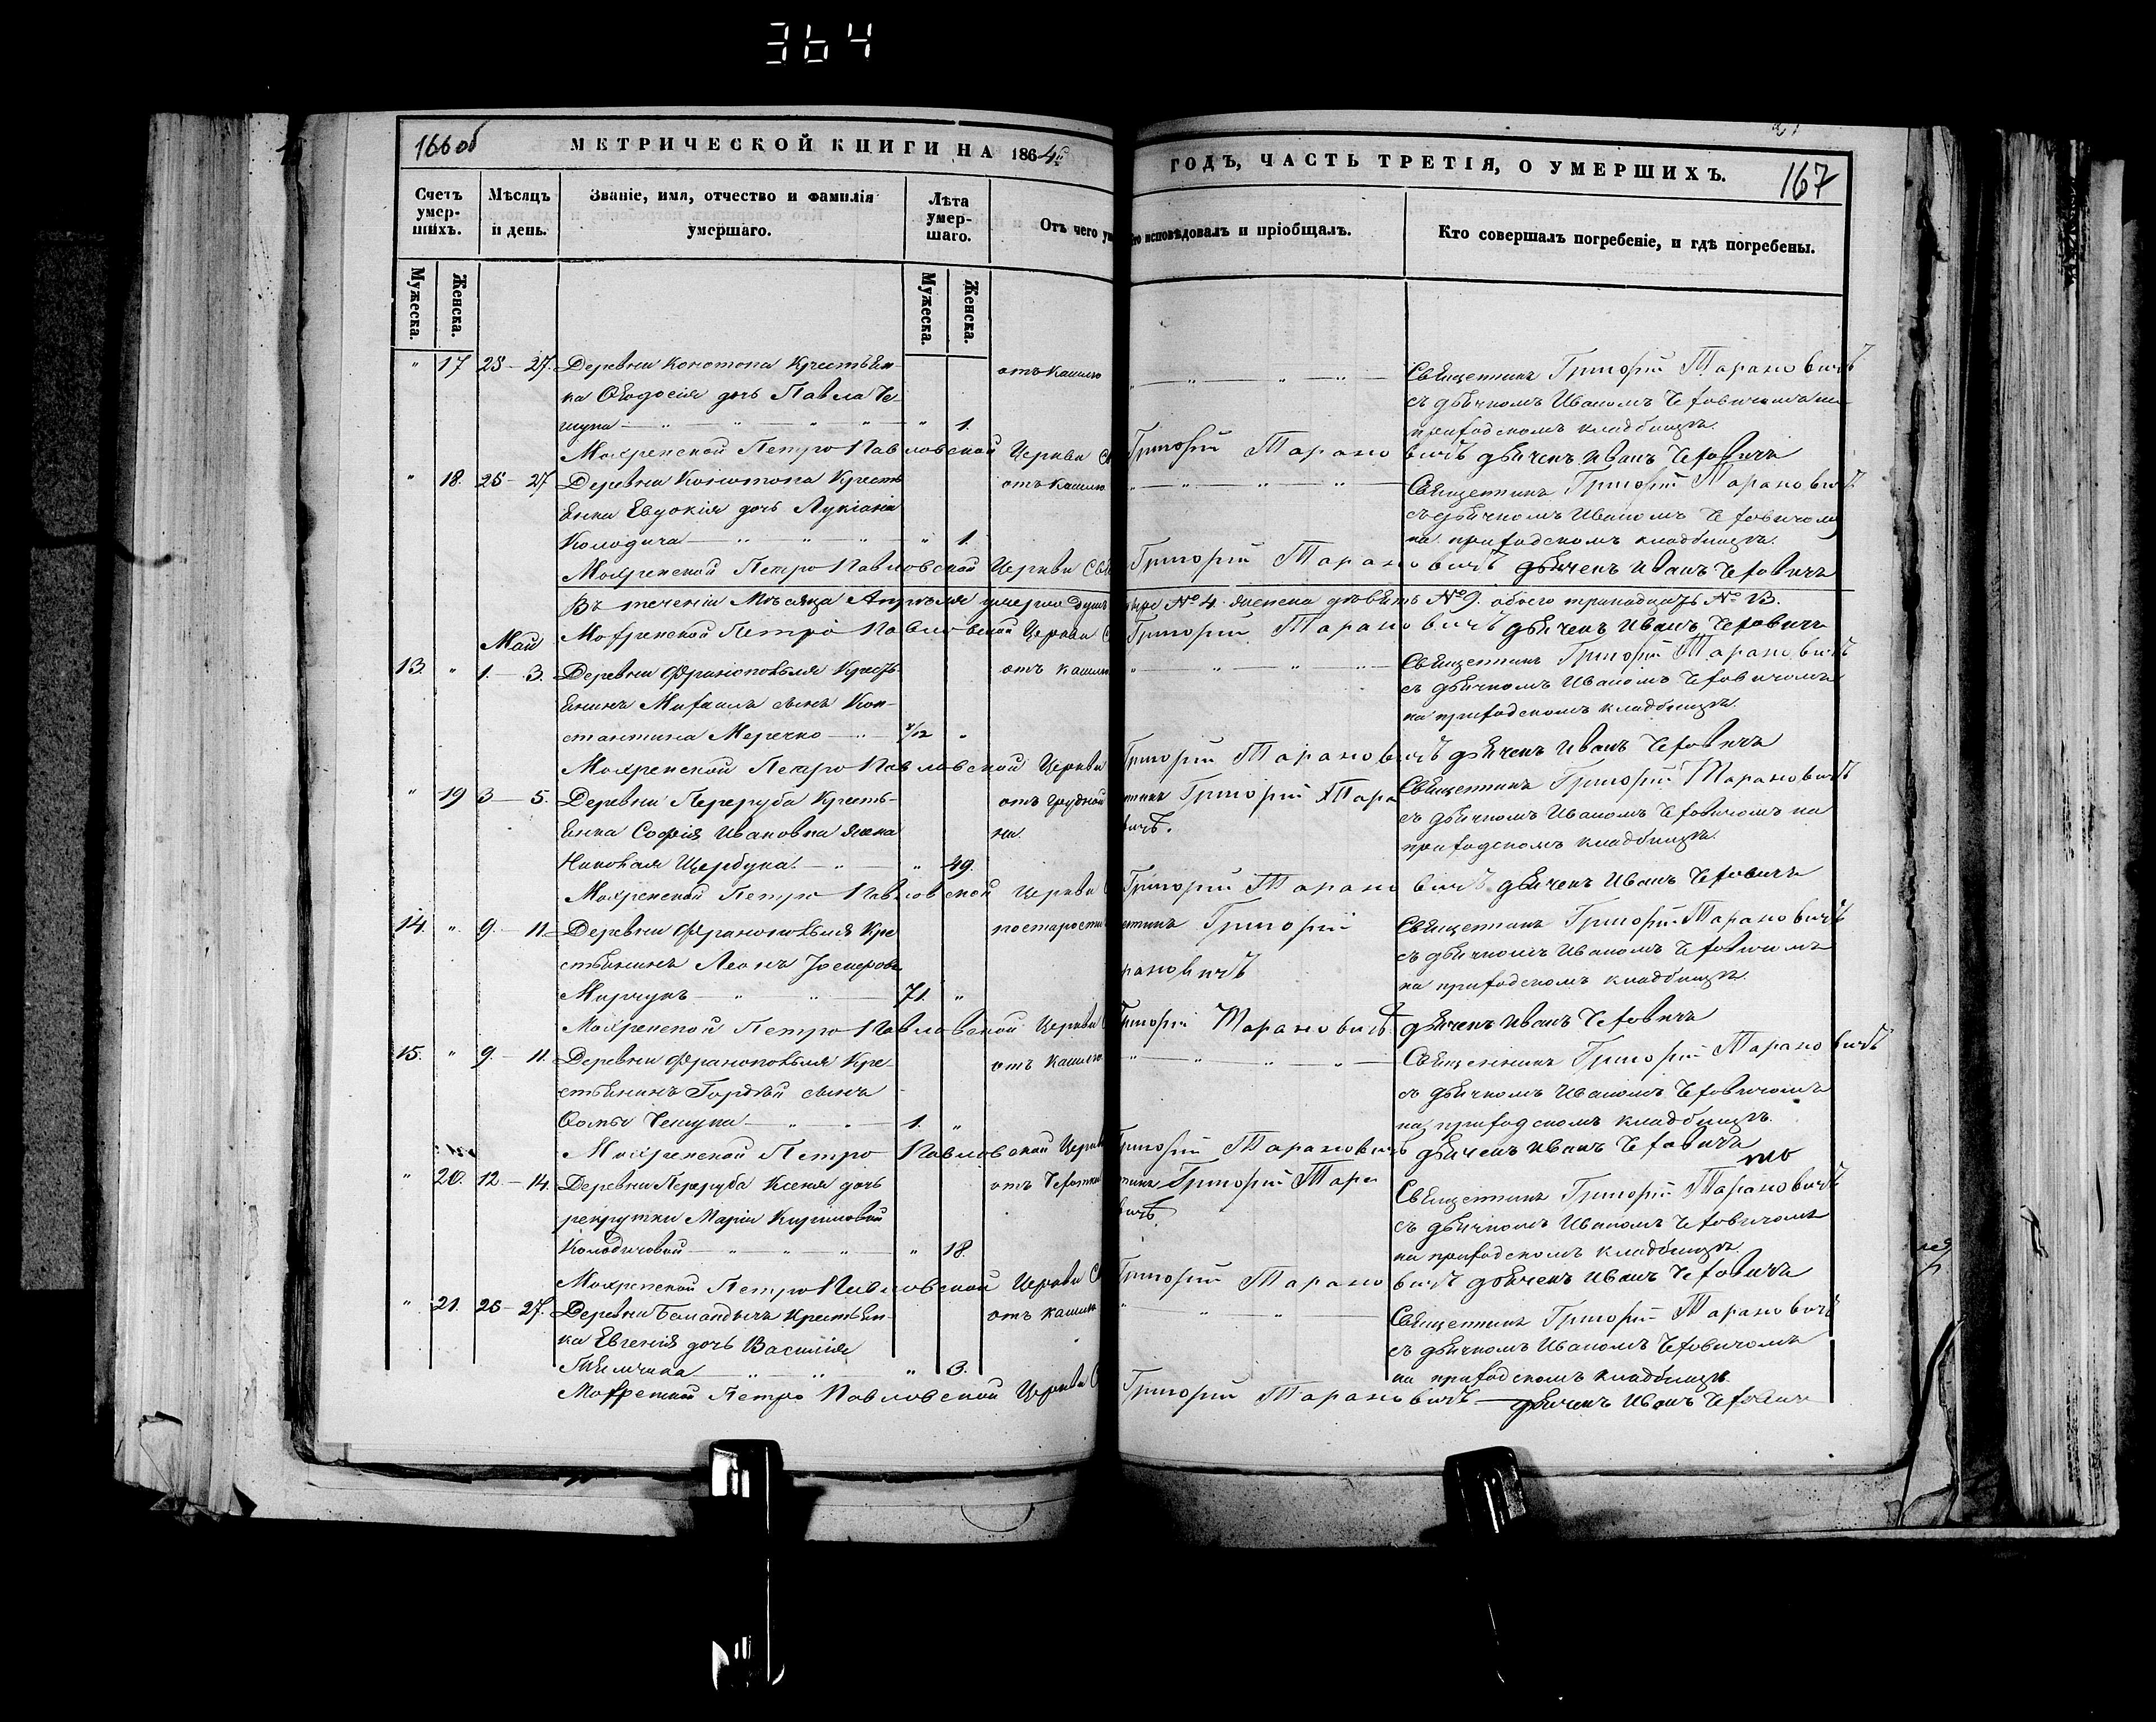 364
166об
МЕТРИЧЕСКОЙ КНИГИ НА 1864й ГОДЪ, ЧАСТЬ ТРЕТІЯ, О УМЕРШИХЪ.
167
Счетъ умершихъ.
Мѣсяцъ и день.
Званіе, имя, отчество и фамилія умершаго.
Лѣта умершаго.
Отъ чего ум
то исповѣдовалъ и пріобщалъ.
Кто совершалъ погребеніе, и гдѣ погребены.
Мужеска. Женска. Мужеска. Женска.
" 17 25 - 27. Деревни Конотопа Крестьян- отъ кашлю Священникъ Григорій Тарановичъ
ка Ѳеодосія дочь Павла Че съ дьячкомъ Иваномъ Чеховичомъ на
шуна " 1. приходскомъ кладбищѣ.
Мохренской Петро Павловской Церкви Григорій Тарановичъ дьячекъ Иванъ Чеховичъ
" 18. 25 - 27 Деревни Конотопа Кресть отъ кашлю Священникъ Григорій Тарановичъ
янка Евдокія дочь Лукіана съ дьячкомъ Иваномъ Чеховичомъ
Колодича " 1. на приходскомъ кладбищѣ.
Мохренской Петро Павловской Церкви Свя Григорій Тарановичъ дьячекъ Иванъ Чеховичъ
Въ теченіи Мѣсяца Апрѣля умерло душъ № 4. женска девять № 9. обоего тринадцать № 13.
Мохренской Петро Павловской Церкви С Григорій Тарановичъ дьячекъ Иванъ Чеховичъ
Май
13. " 1. - 3. Деревни Франополья Кресть отъ кашлю Священникъ Григорій Тарановичъ
янинъ Михаилъ сынъ Кон- съ дьячкомъ Иваномъ Чеховичомъ
стантина Меречко /12 " на приходскомъ кладбищѣ.
Мохренской Петро Павловской Церкви Григорій Тарановичъ дьячекъ Иванъ Чеховичъ
" 19 3 - 5. Деревни Переруба Кресть- отъ грудной нникъ Григорій Тара Священникъ Григорій Тарановичъ
янка Софія Ивановна жена вичъ. съ дьячкомъ Иваномъ Чеховичомъ на
Николая Щербука " 49. приходскомъ кладбищѣ.
Мохренской Петро Павловской Церкви С Григорій Тарановичъ дьячекъ Иванъ Чеховичъ
14. " 9. - 11. Деревни Франополья Кре по старости нникъ Григорій Священникъ Григорій Тарановичъ
стьянинъ Леонъ рановичъ съ дьячкомъ Иваномъ Чеховичомъ
71. " на приходскомъ кладбищѣ.
Мохренской Петро Павловской Церкви С Григорій Тарановичъ дьячекъ Иванъ Чеховичъ
15. " 9. - 11. Деревни Франополья Кре- отъ кашлю Священникъ Григорій Тарановичъ
стьянинъ Гордѣй сынъ съ дьячкомъ Иваномъ Чеховичомъ
Ѳомы Чешуна 1. " на приходскомъ кладбищѣ.
Мохренской Петро Павловской Церкви Григорій Тарановичъ дьячекъ Иванъ Чеховичъ
" 20. 12. - 14. Деревни Переруба Ксенія дочь отъ Чехотки нникъ Григорій Тара Священникъ Григорій Тарановичъ
рекрутки Маріи Кириловой вичъ. съ дьячкомъ Иваномъ Чеховичомъ
Колодичовой " 18. на приходскомъ кладбищѣ.
Мохренской Петро Павловской Церкви С Григорій Тарановичъ дьячекъ Иванъ Чеховичъ
" 21. 25 - 27. Деревни Баландычъ Крестьян- отъ кашлю Священникъ Григорій Тарановичъ
ка Евгенія дочь Василія съ дьячкомъ Иваномъ Чеховичомъ
" 3. на приходскомъ кладбищѣ
Мохренской Петро Павловской Церкви С Григорій Тарановичъ дьячекъ Иванъ Чеховичъ